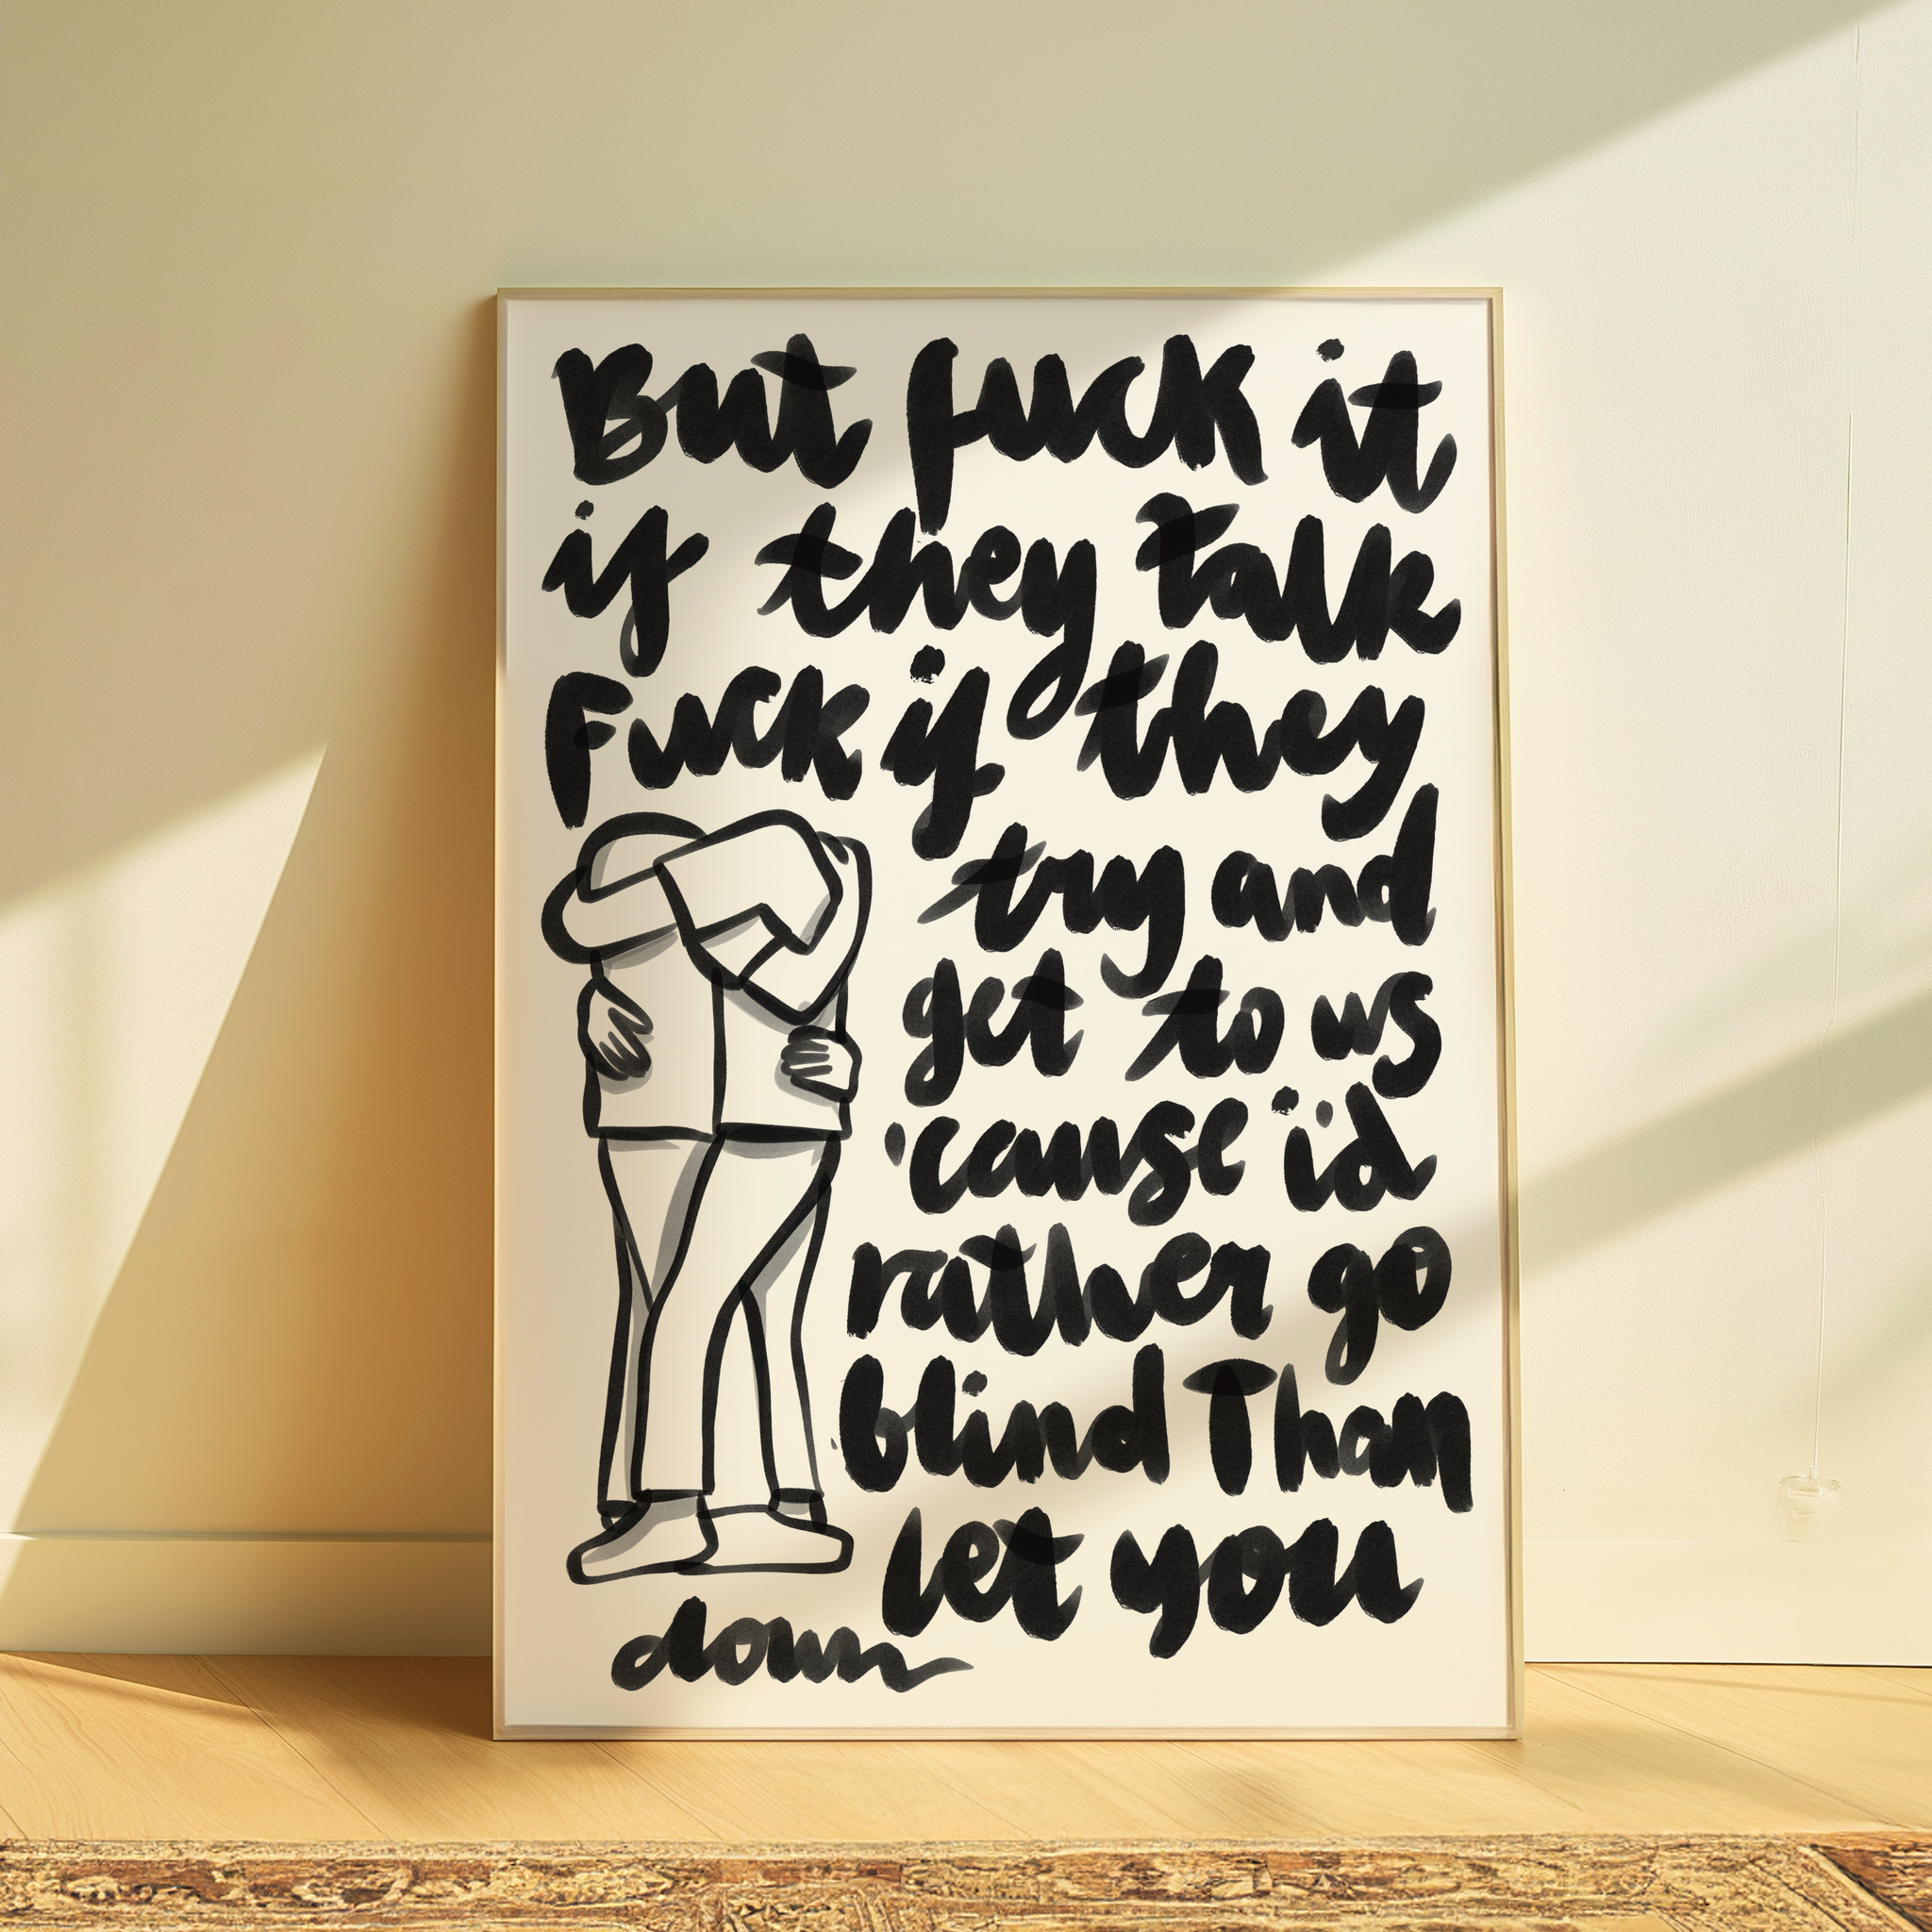 But fuck it
if they talk
Fuck if they
try and
get to us
'cause i'd
rather go
blind Than
let you
down